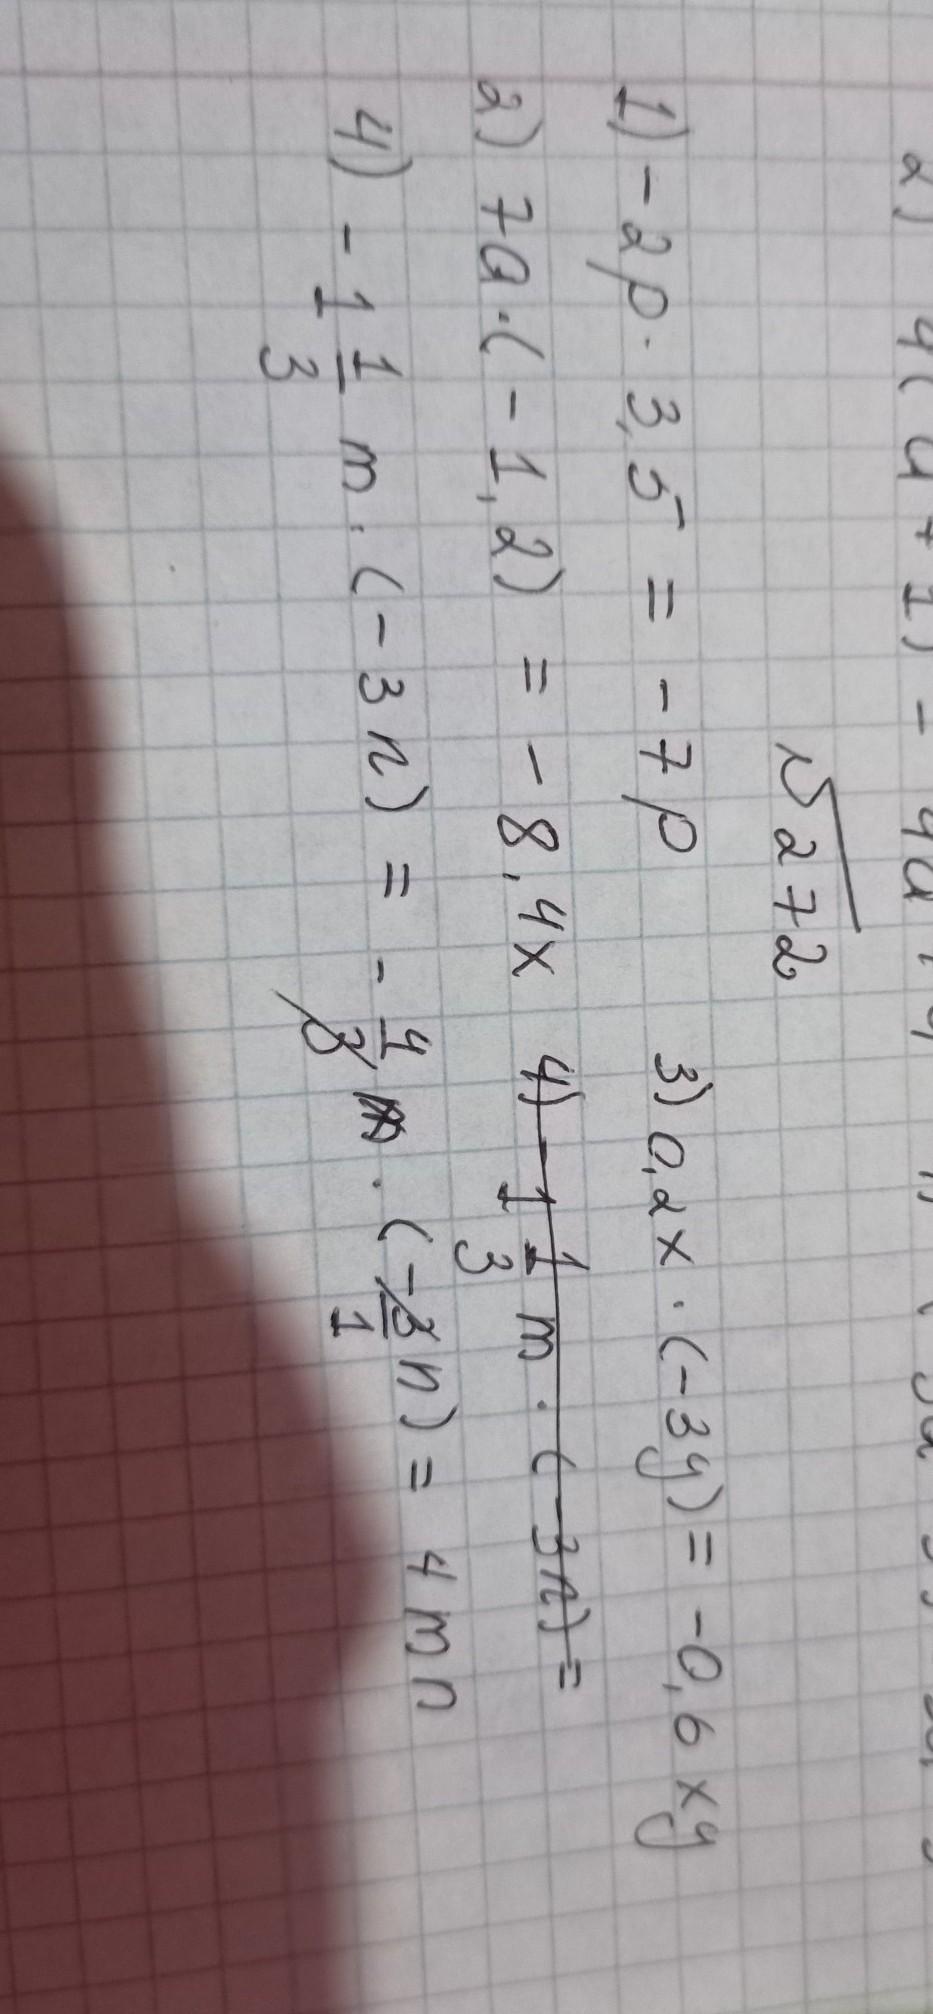 2) 4(a+1) - 4a
√272
1) -2p · 3,5 = -7p 3) 0,2x · (-3y) = -0,6xy
2) 7a · (-1,2) = -8,4x 4) -1 1/3 m · (-3n) =
4) -1 1/3 m · (-3n) = -4/3 m · (-3/1 n) = 4mn